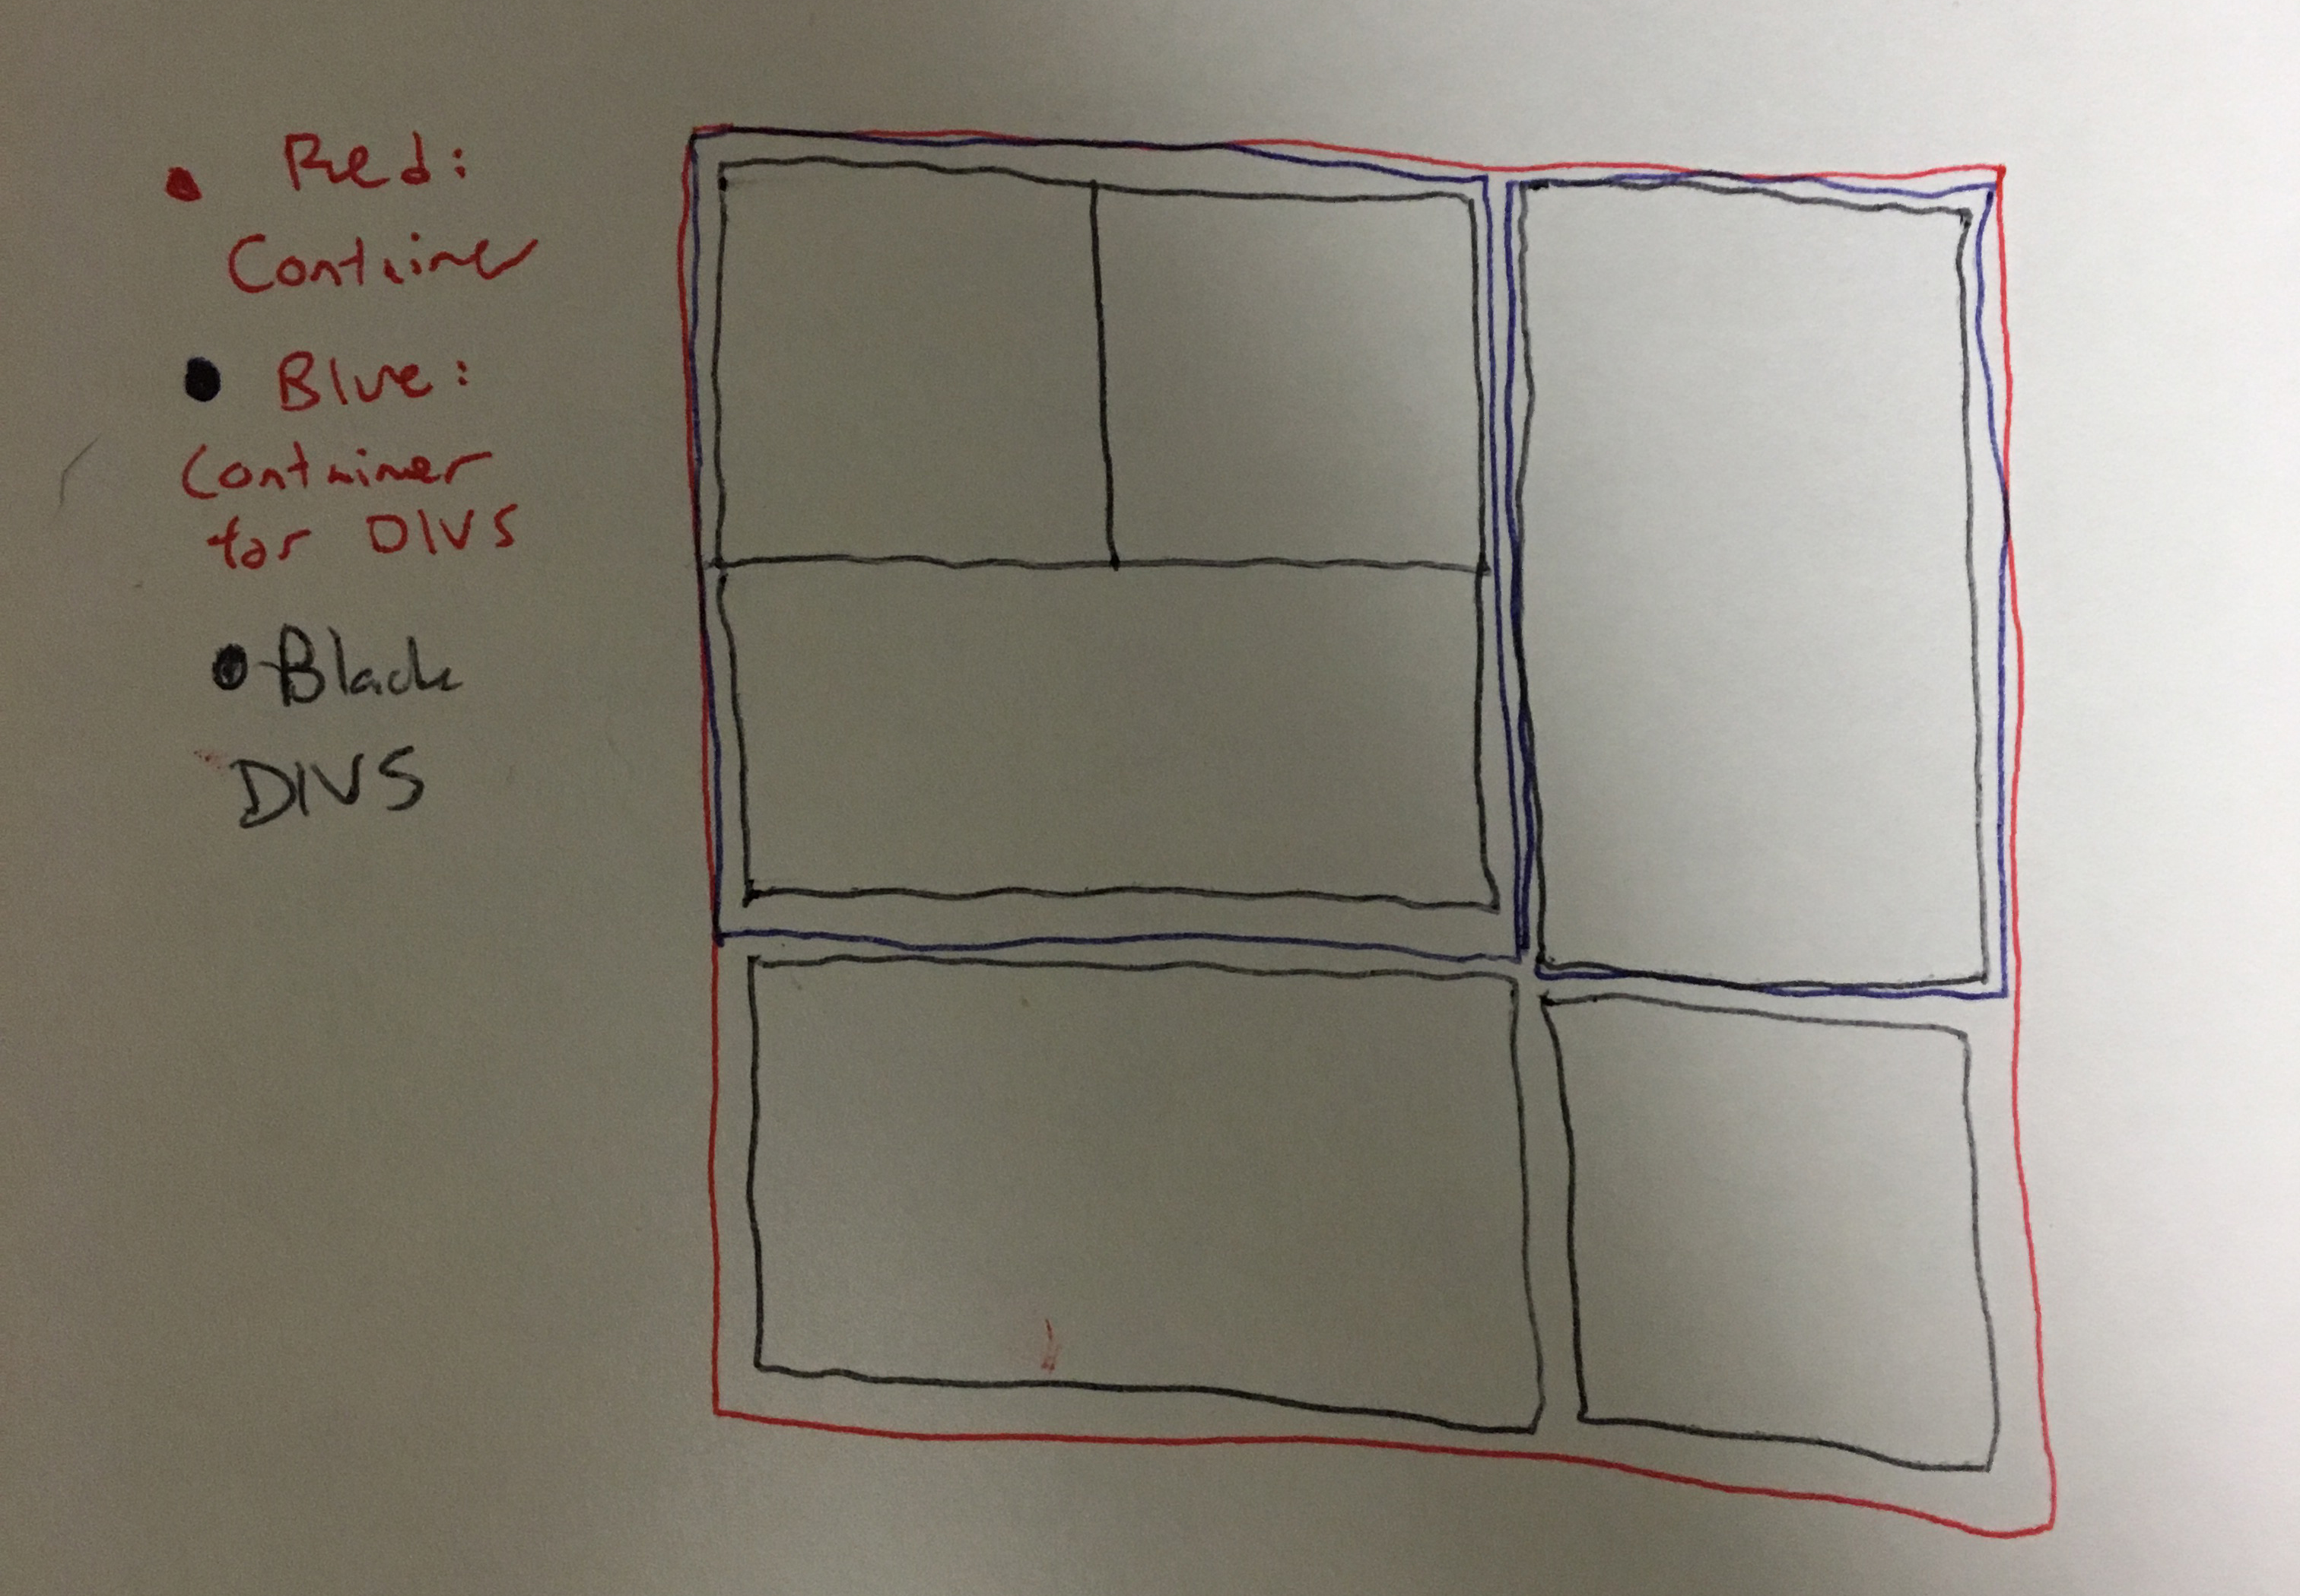 Red:
Container
Blue:
Container
for DIVS
Black
DIVS